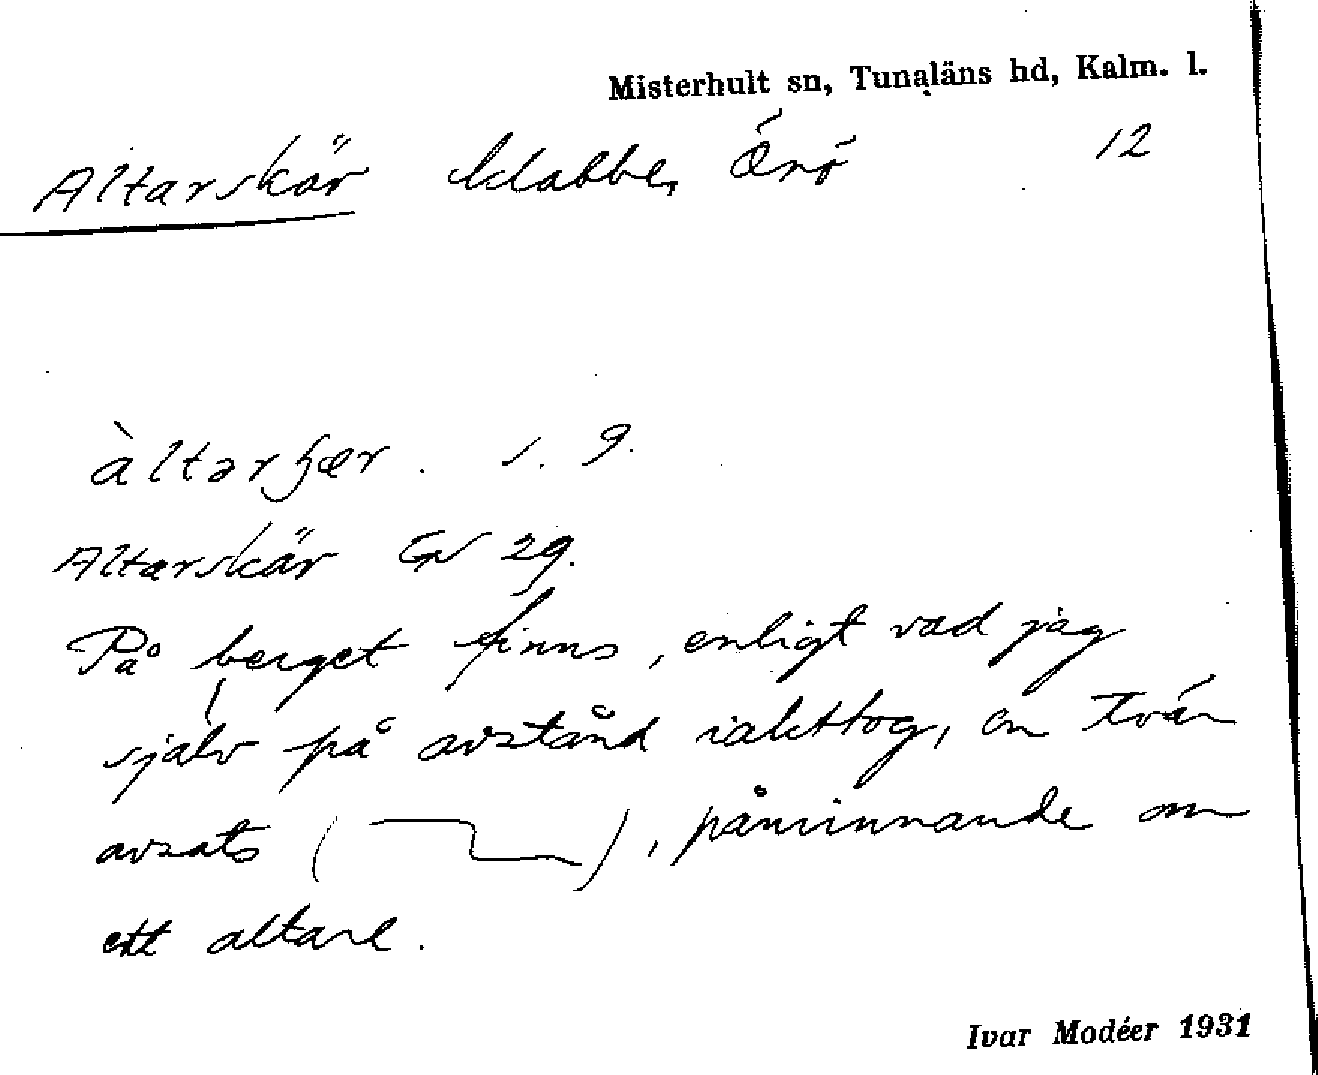 Misterhult sn, Tunaläns hd, Kalm. l.
Altarskär klabbe, Örö 12
àltarʃær. s. 9.
Altarskär GV 29.
På berget finns, enligt vad jag
själv på avstånd iakttog, en tvär
avsats ( ), påminnande om
ett altare.
Ivar Modéer 1931